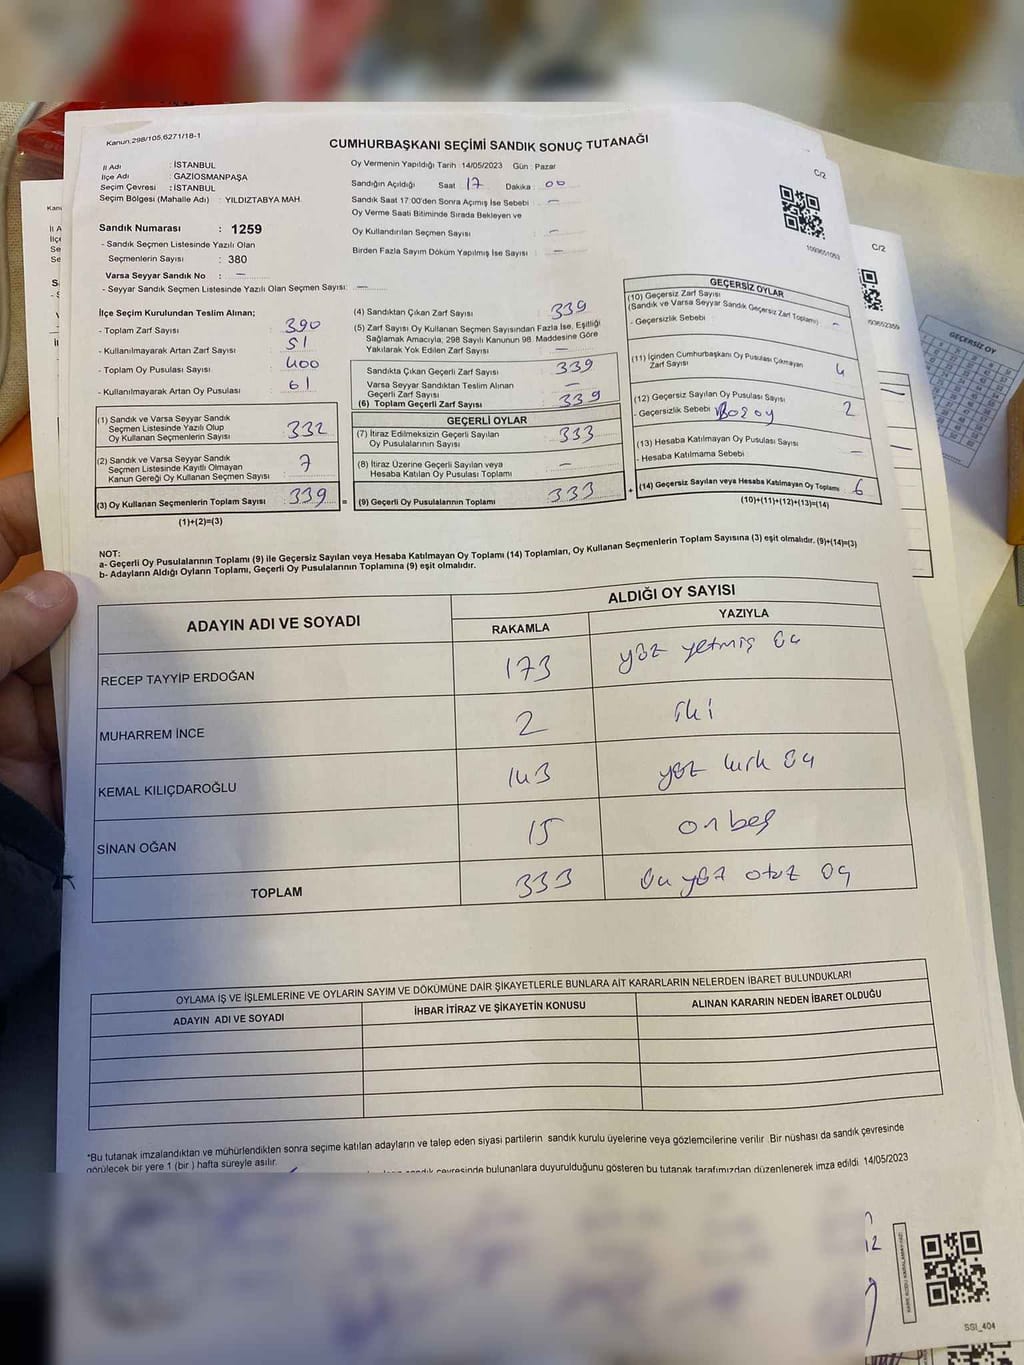 Kanun,298/105,6271/18-1
CUMHURBAŞKANI SEÇİMİ SANDIK SONUÇ TUTANAĞI
C/2
İl Adı : İSTANBUL
İlçe Adı : GAZİOSMANPAŞA
Seçim Çevresi : İSTANBUL
Seçim Bölgesi (Mahalle Adı) : YILDIZTABYA MAH.
Oy Vermenin Yapıldığı Tarih : 14/05/2023 Gün : Pazar
Sandığın Açıldığı Saat : 17 Dakika : 00
Sandık Saat 17:00'den Sonra Açımış İse Sebebi : –
Oy Verme Saati Bitiminde Sırada Bekleyen ve
Oy Kullandırılan Seçmen Sayısı : –
Birden Fazla Sayım Döküm Yapılmış İse Sayısı : –
Sandık Numarası : 1259
- Sandık Seçmen Listesinde Yazılı Olan
Seçmenlerin Sayısı : 380
Varsa Seyyar Sandık No : –
- Seyyar Sandık Seçmen Listesinde Yazılı Olan Seçmen Sayısı: –
İlçe Seçim Kurulundan Teslim Alınan;
- Toplam Zarf Sayısı : 390
- Kullanılmayarak Artan Zarf Sayısı : 51
- Toplam Oy Pusulası Sayısı : 400
- Kullanılmayarak Artan Oy Pusulası : 61
(1) Sandık ve Varsa Seyyar Sandık
Seçmen Listesinde Yazılı Olup
Oy Kullanan Seçmenlerin Sayısı : 332
(2) Sandık ve Varsa Seyyar Sandık
Seçmen Listesinde Kayıtlı Olmayan
Kanun Gereği Oy Kullanan Seçmen Sayısı : 7
(3) Oy Kullanan Seçmenlerin Toplam Sayısı : 339 =
(1)+(2)=(3)
(4) Sandıktan Çıkan Zarf Sayısı : 339
(5) Zarf Sayısı Oy Kullanan Seçmen Sayısından Fazla İse, Eşitliği
Sağlamak Amacıyla; 298 Sayılı Kanunun 98. Maddesine Göre
Yakılarak Yok Edilen Zarf Sayısı : –
Sandıkta Çıkan Geçerli Zarf Sayısı : 339
Varsa Seyyar Sandıktan Teslim Alınan
Geçerli Zarf Sayısı : –
(6) Toplam Geçerli Zarf Sayısı : 339
GEÇERLİ OYLAR
(7) İtiraz Edilmeksizin Geçerli Sayılan
Oy Pusulalarının Sayısı : 333
(8) İtiraz Üzerine Geçerli Sayılan veya
Hesaba Katılan Oy Pusulası Toplamı : –
(9) Geçerli Oy Pusulalarının Toplamı : 333 +
GEÇERSİZ OYLAR
(10) Geçersiz Zarf Sayısı
(Sandık ve Varsa Seyyar Sandık Geçersiz Zarf Toplamı) : –
- Geçersizlik Sebebi :
(11) İçinden Cumhurbaşkanı Oy Pusulası Çıkmayan
Zarf Sayısı : 4
(12) Geçersiz Sayılan Oy Pusulası Sayısı : 2
- Geçersizlik Sebebi :
(13) Hesaba Katılmayan Oy Pusulası Sayısı
- Hesaba Katılmama Sebebi : –
(14) Geçersiz Sayılan veya Hesaba Katılmayan Oy Toplamı : 6
(10)+(11)+(12)+(13)=(14)
NOT:
a- Geçerli Oy Pusulalarının Toplamı (9) ile Geçersiz Sayılan veya Hesaba Katılmayan Oy Toplamı (14) Toplamları, Oy Kullanan Seçmenlerin Toplam Sayısına (3) eşit olmalıdır. (9)+(14)=(3)
b- Adayların Aldığı Oyların Toplamı, Geçerli Oy Pusulalarının Toplamına (9) eşit olmalıdır.
ADAYIN ADI VE SOYADI
ALDIĞI OY SAYISI
RAKAMLA YAZIYLA
RECEP TAYYİP ERDOĞAN 173 yüz yetmiş üç
MUHARREM İNCE 2 iki
KEMAL KILIÇDAROĞLU 143 yüz kırk üç
SİNAN OĞAN 15 on beş
TOPLAM 333 üç yüz otuz üç
OYLAMA İŞ VE İŞLEMLERİNE VE OYLARIN SAYIM VE DÖKÜMÜNE DAİR ŞİKAYETLERLE BUNLARA AİT KARARLARIN NELERDEN İBARET BULUNDUKLARI
ADAYIN ADI VE SOYADI İHBAR İTİRAZ VE ŞİKAYETİN KONUSU ALINAN KARARIN NEDEN İBARET OLDUĞU
*Bu tutanak imzalandıktan ve mühürlendikten sonra seçime katılan adayların ve talep eden siyasi partilerin sandık kurulu üyelerine veya gözlemcilerine verilir .Bir nüshası da sandık çevresinde
görülecek bir yere 1 (bir ) hafta süreyle asılır.
sandık çevresinde bulunanlara duyurulduğunu gösteren bu tutanak tarafımızdan düzenlenerek imza edildi 14/05/2023
SSI_404
C/2
GEÇERSİZ OY